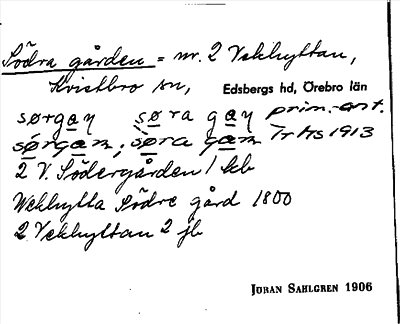 Södra gården = nr. 2 Vekhyttan,
Kvistbro sn, Edsbergs hd, Örebro län
sørgan sø ra gan prim.-ant.
sørgan, søra gan Tr Hs 1913
2 V. Södergården 1 kb
Wekhytta Södre gård 1800
2 Vekhyttan 2 jb
JÖRAN SAHLGREN 1906